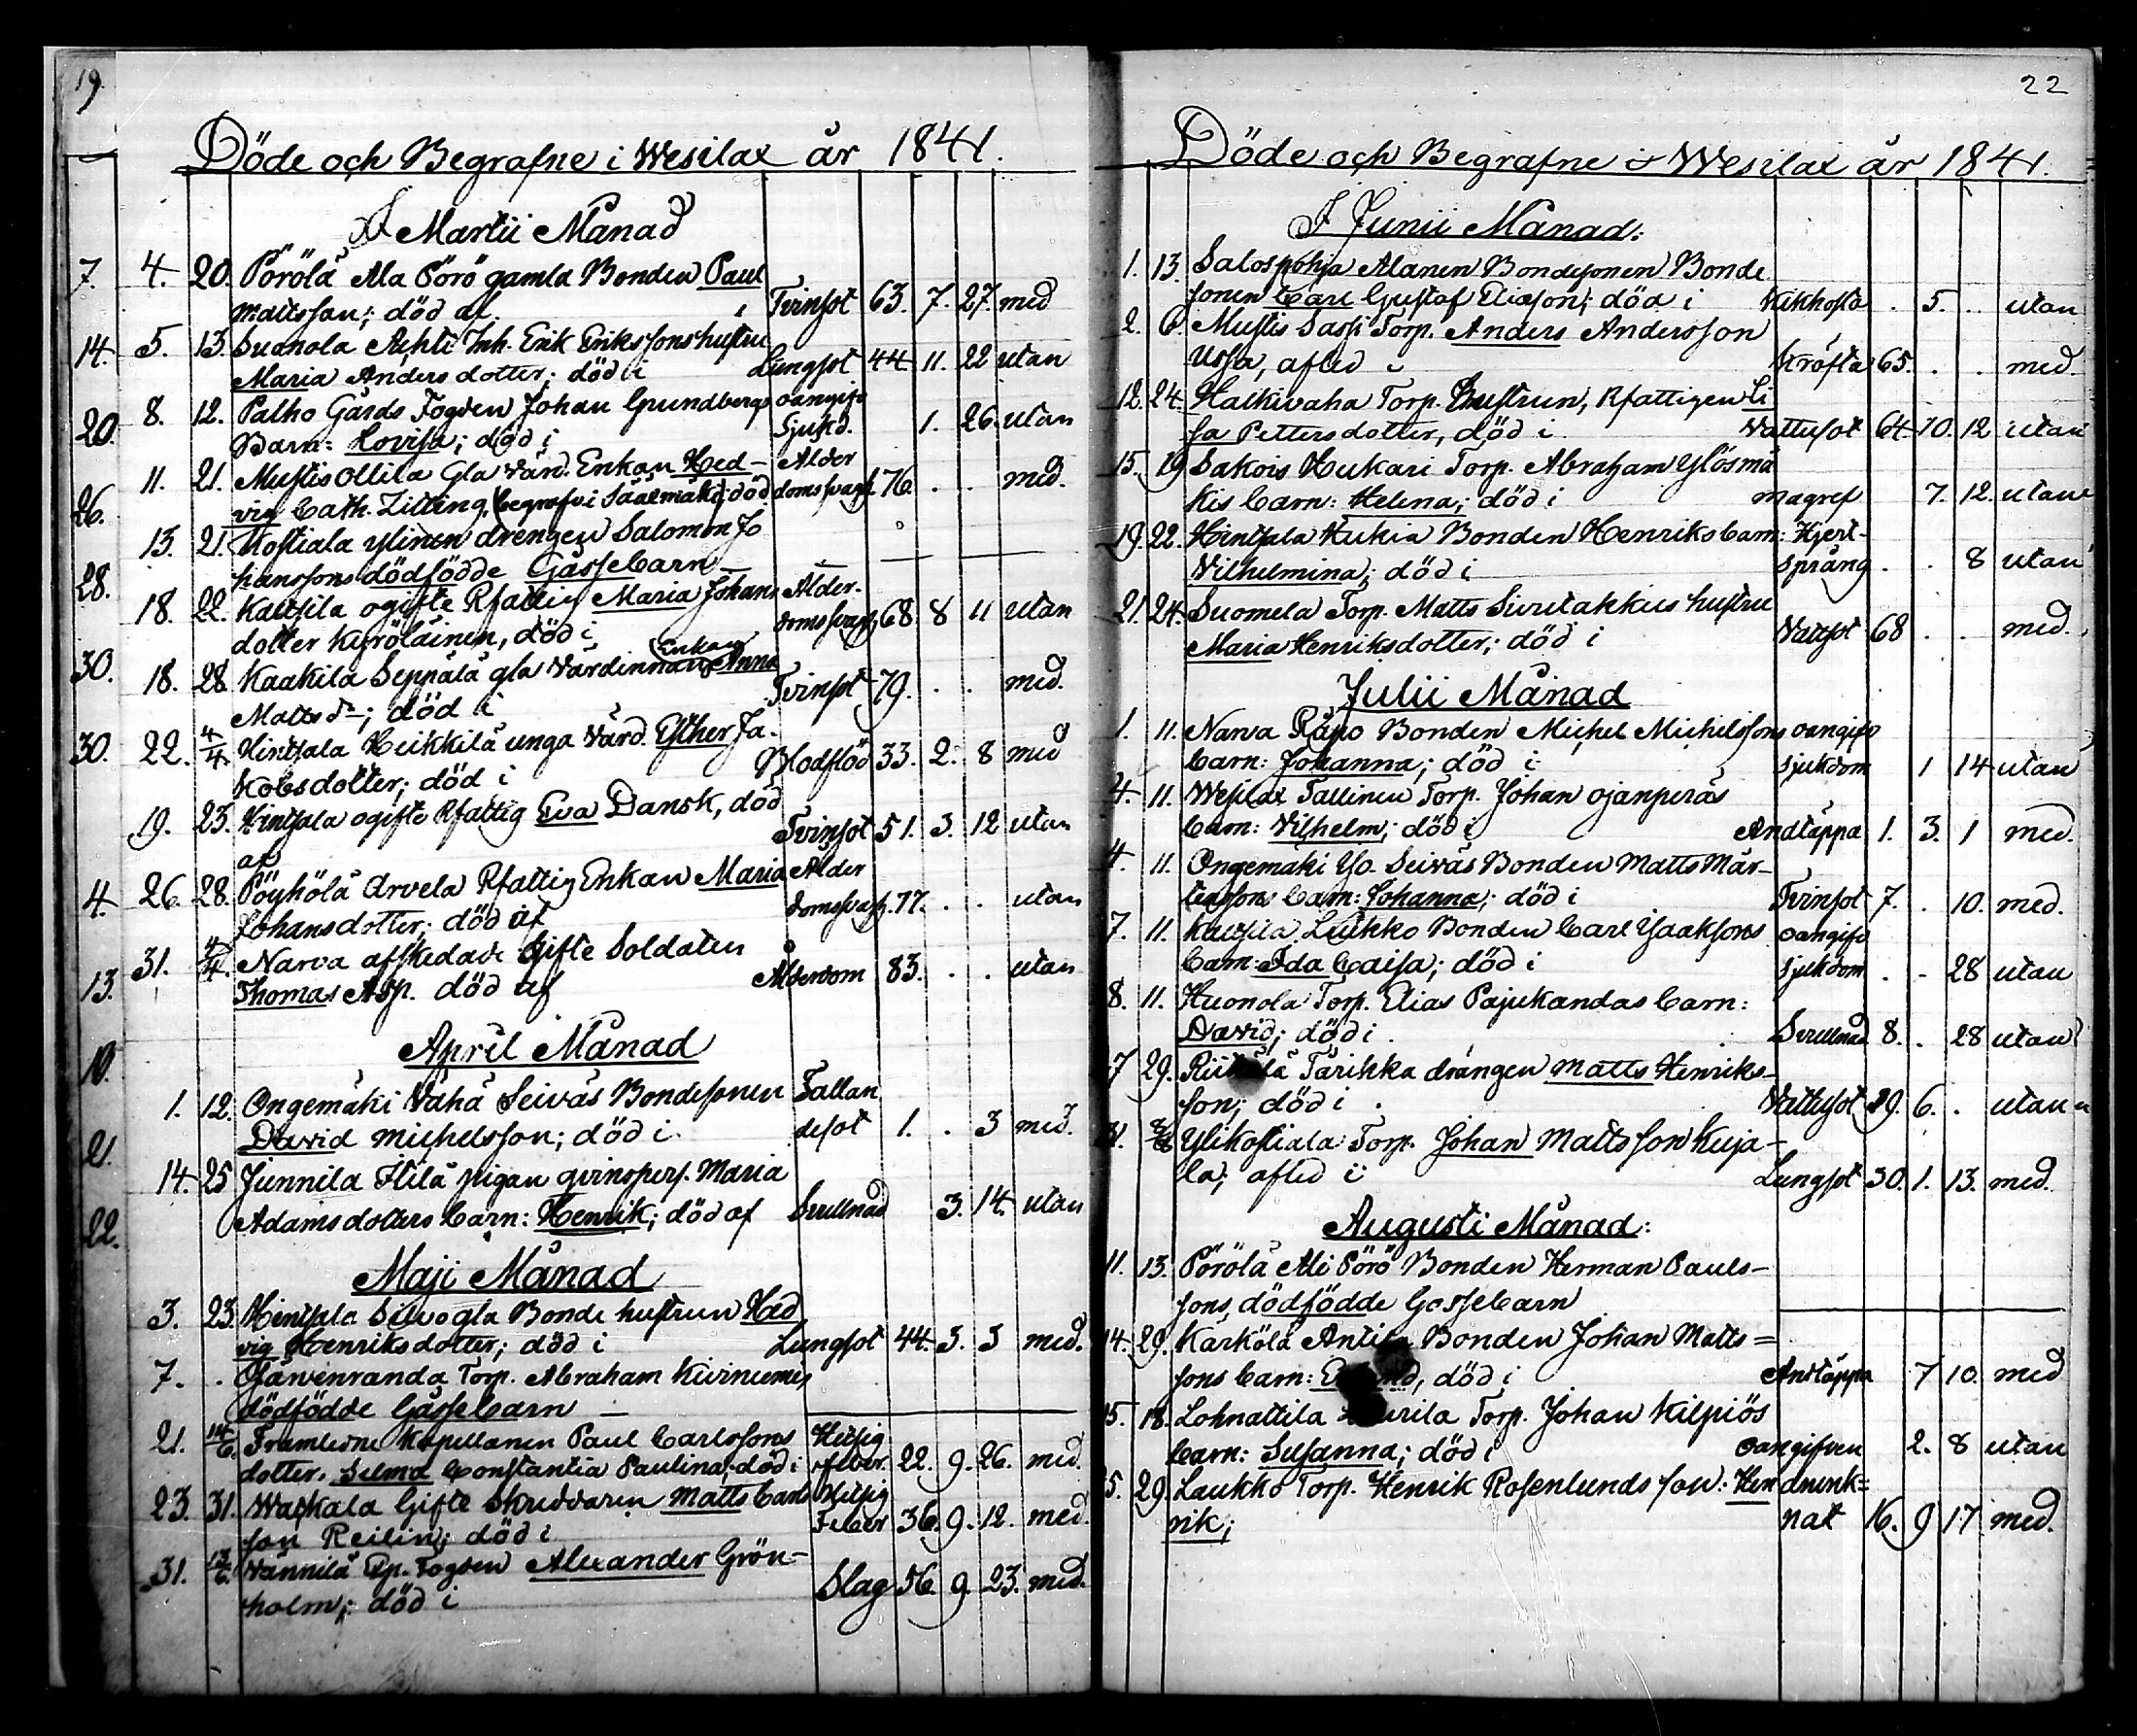 19.
Döde och Begrafne i Wesilax år 1841.
I Martii Månad
7. 4. 20. Pörölä Ala Pörö gamla Bonden Paul
Mattsson; död af Tvinsot 63. 7. 27. med
14. 5. 13. Suanola Ahti Inh. Erik Erikssons hustru
Maria Andersdotter; död i Lungsot 44 11. 22 utan
20. 8. 12. Palho Gårds Fogden Johan Grundbergs oangifv
Barn: Lovisa; död i Sjukd. 1. 26. utan
26. 11. 21. Mustis Ollila Gla Värd. Enkan Hed- Ålder
vig Cath. Zitting, (begrafv i Sääxmäki) död domssvagh. 76. . . med.
13. 21. Kostiala Ylinen drengen Salomon Jo
hanssons dödfödde Gåssebarn —
28. 18. 22. Kautiila ogifte Rfattig Maria Johans Ålder-
dotter Kyröläinen, död i domssvagh. 68. 8 11 utan
30. 18. 28 Kaakila Seppälä gla Värdinnan Enkan Anna
Matts dr; död i Tvinsot 79. . . med.
30. 22. 4/4. Hinsala Heikkilä unga Värd. Esther Ja-
kobsdotter; död i Blodflöd 33. 2. 8 med
19. 23. Hinsala ogifte Rfattig Eva Dansk, död
af Tvinsot 51. 3. 12 utan
4. 26. 28. Pöyhölä Arvela Rfattig Enkan Maria Ålder
Johansdotter; död af domssvagh. 77. . . utan
13. 31. 4/4. Narva afskedade Gifte Soldaten
Thomas Asp. död af Ålderdom 83. . . utan
April Månad
10.
1. 12. Ongemäki Vähä Seiväs Bondesonen Fallan
21. David Michelsson; död i desot 1. . 3 med.
14. 25 Junnila Itilä pigan qvinspers. Maria
22. Adamsdotters barn: Henrik; död af Svullnad 3. 14. utan
Maji Månad
3. 23. Hinsala Silvo gla Bonde hustrun Hed
vig Henriksdotter; död i Lungsot 44. 3. 3 med.
7. . Järvenranda Torp. Abraham Kivinemis
dödfödde Gåssebarn —
21. 14/6. Framledne Kapellanen Paul Carlssons Hitsig
dotter, Selma Constantia Paulina; död i feber. 22. 9. 26. med.
23. 31. Waskala Gifte Skreddaren Matts Carls Hitsig
son Reilin; död i Feber 36. 9. 12. med.
31. 13/6. Wännilä Rp. Fogden Alexander Grön-
holm; död i Slag 56. 9. 23. med.
22
Döde och Begrafne i Wesilax år 1841.
I Junii Månad:
1. 13. Salospohja Alanen Bondesonen Bonde
sonen Carl Gustaf Eliasson; död i Kikhosta . 5. . utan
2. 6. Mustis Sassi Torp. Anders Andersson
Ussa, afled i Kräfta 65. . . med.
12. 24. Halkivaha Torp. Enkan hustrun, Rfattigen Li
sa Pettersdotter, död i Vattusot 64. 10. 12 utan
15. 19 Sakois Heikari Torp. Abraham Ylösmä
kis barn: Helena; död i magref 7. 12. utan
19. 22. Hinsala Kukia Bonden Henriks barn: Hjert-
Vilhelmina; död i språng . . 8 utan
21. 24. Suomela Torp. Matts Sivulakkus hustru
Maria Henriksdotter; död i Vattsot 68 . . med.
Julii Månad
1. 11. Narva Räpo Bonden Michel Michelssons oangifv
barn: Johanna; död i sjukdom 1 14 utan
4. 11. Wesilax Tallinen Torp. Johan Ojanperäs
barn: Vilhelm; död i Andtäppa 1. 3. 1 med.
4. 11. Ongemäki Yo. Seiväs Bonden Matts Mår-
tenssons barn: Johanna; död i Tvinsot 7. . 10. med.
7. 11. Kautiila Luikko Bonden Carl Isakssons oangifv
barn: Ida Caisa; död i sjukdom . - 28 utan
8. 11. Huonola Torp. Elias Pajukandas barn:
David; död i Svullnad 8. . 28 utan
7 29. Tärikka drängen Matts Henriks-
son; död i Vattusot 29. 6. . utan
31. 8/8 Ylikostiala Torp. Johan Mattsson Kuja-
la; afled i Lungsot 30. 1. 13. med.
Augusti Månad:
11. 13. Pörölä Ali Pörö Bonden Herman Pauls-
sons, dödfödde Gossebarn
14. 29. Karkölä Antila Bonden Johan Matts=
sons barn: död i Andtäppa 7 10. med
15. 18. Lohnattila Torp. Johan Kilpiös
barn: Susanna; död i oangifven 2. 8 utan
5. 29. Laukko Torp. Henrik Rosenlunds son: Hen drunk=
rik; nat 16. 9 17 med.